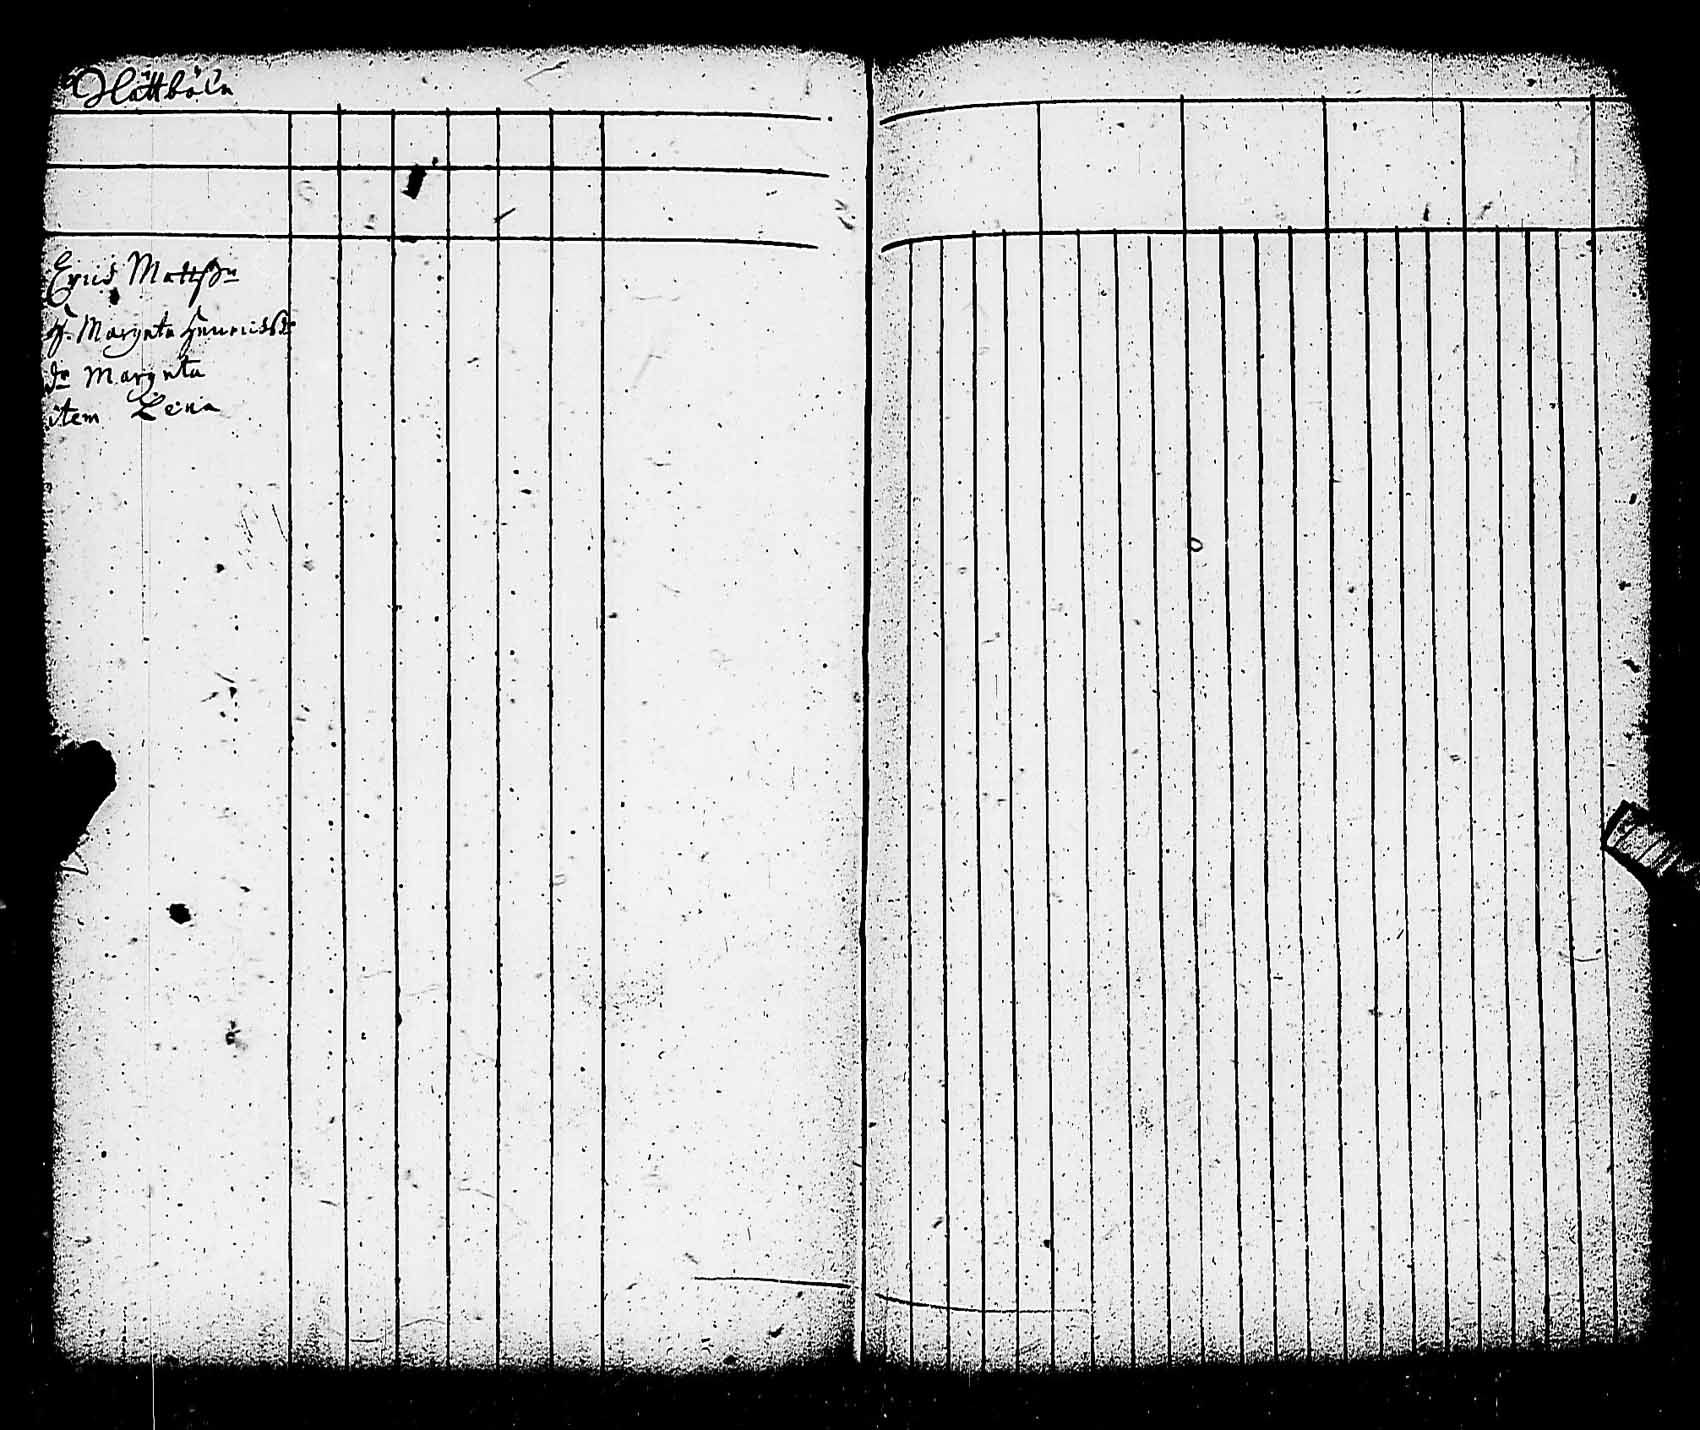 Håttböla
Eric Mattsson
H. Margeta Henricsdr
dr Margeta
item Lena